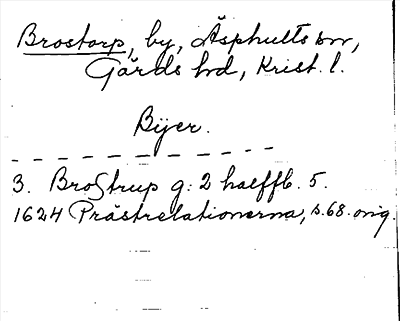 Brostorp, by, Äsphults sn,
Gärds hd, Krist. l.
Byer.
3. Brostrup g: 2 halffb. 5.
1624 Prästrelationerna, s. 68. orig.